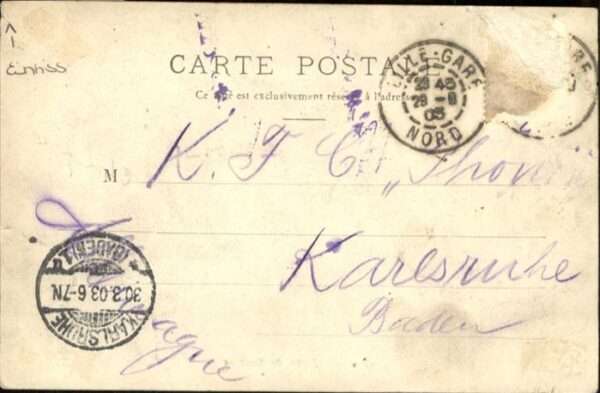 Einriss
CARTE POSTALE
Ce côté est exclusivement réservé à l'adresse
LILLE-GARE
23 45
28 -3
03
NORD
M K. F. C. „
Karlsruhe
Baden
KARLSRUHE
30.3.03.6-7N.
(BADEN) 1.